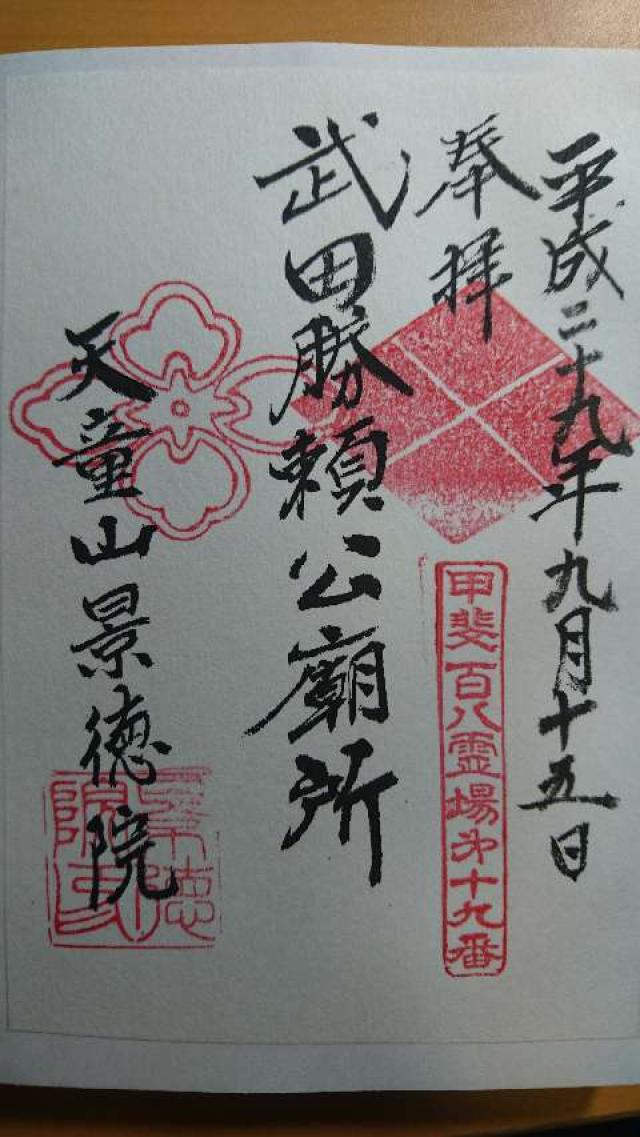 平成二十九年九月十五日
奉拝
甲斐百八霊場第十九番
武田勝頼公廟所
天童山景徳院
景徳院印